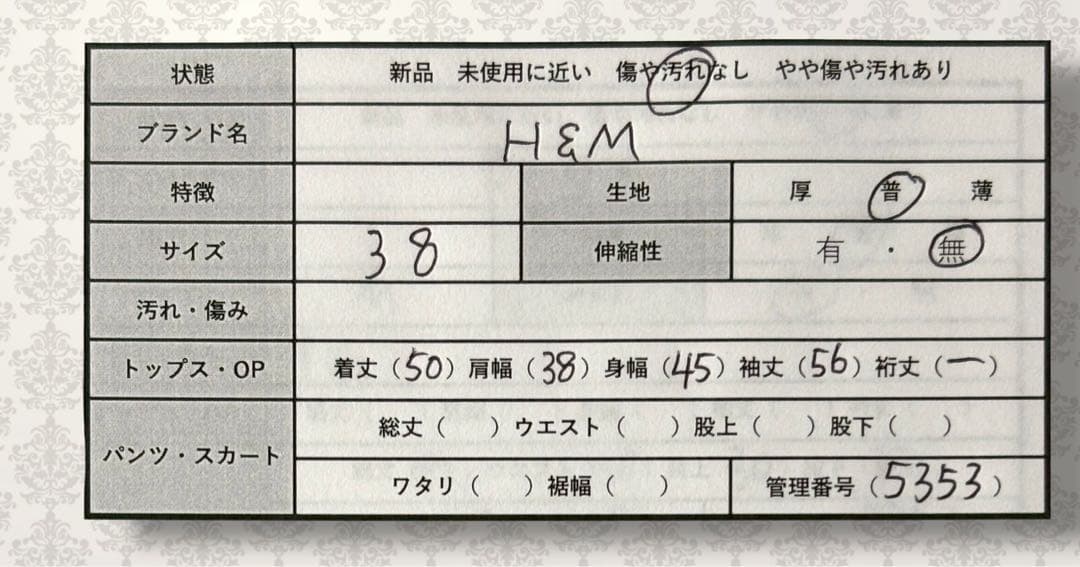 状態 新品 未使用に近い 傷や汚れなし やや傷や汚れあり
ブランド名 H&M
特徴 生地 厚 普 薄
サイズ 38 伸縮性 有 ・ 無
汚れ・傷み
トップス・OP 着丈（50）肩幅（38）身幅（45）袖丈（56）裄丈（ー）
パンツ・スカート 総丈（　　）ウエスト（　　）股上（　　）股下（　　）
ワタリ（　　）裾幅（　　） 管理番号（5353）